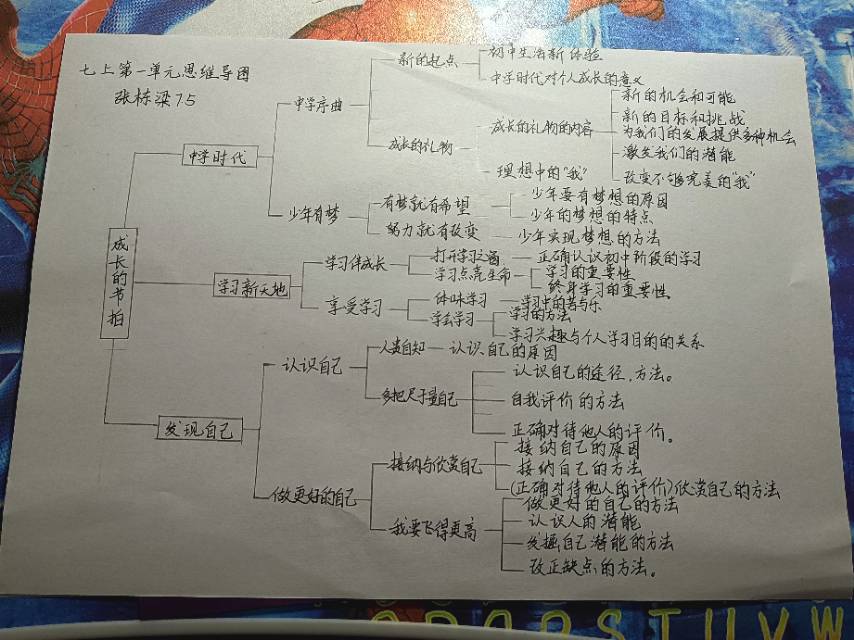 七上第一单元思维导图
张栋梁75
成长的节拍
中学时代
中学序曲
新的起点
初中生活新体验
中学时代对个人成长的意义
成长的礼物
成长的礼物的内容
新的机会和可能
新的目标和挑战
为我们的发展提供多种机会
激发我们的潜能
改变不够完美的"我"
理想中的"我"
少年有梦
有梦就有希望
少年要有梦想的原因
少年的梦想的特点
努力就有改变
少年实现梦想的方法
学习新天地
学习伴成长
打开学习之窗
正确认识初中阶段的学习
学习点亮生命
学习的重要性
终身学习的重要性
享受学习
体味学习
学习中的苦与乐
学会学习
学习的方法
学习兴趣与个人学习目的的关系
发现自己
认识自己
人贵自知
认识自己的原因
多把尺子量自己
认识自己的途径、方法。
自我评价的方法
正确对待他人的评价。
做更好的自己
接纳与欣赏自己
接纳自己的原因
接纳自己的方法
(正确对待他人的评价)欣赏自己的方法
我要飞得更高
做更好的自己的方法
认识人的潜能
发掘自己潜能的方法
改正缺点的方法。
PQRSTUVW